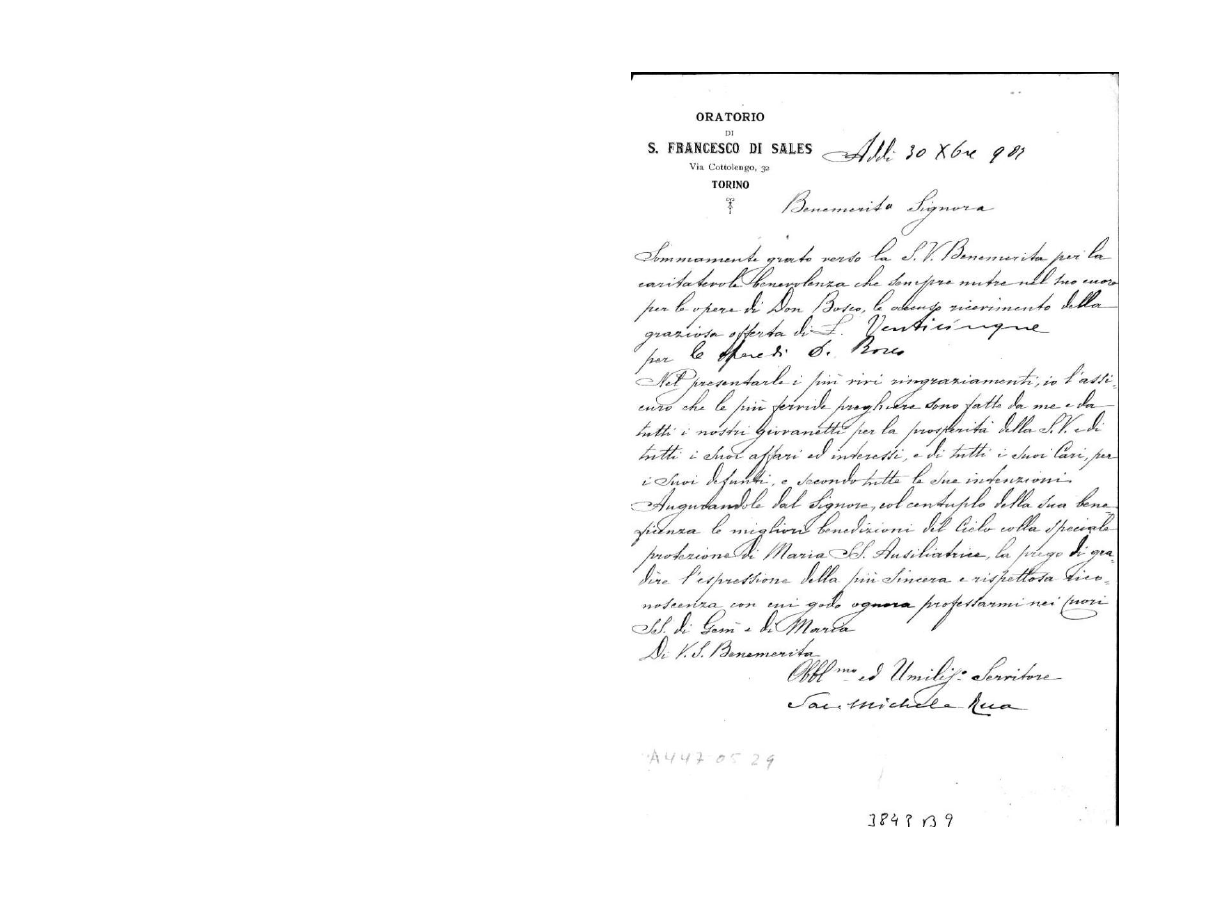 ORATORIO
DI
S. FRANCESCO DI SALES
Via Cottolengo, 32
TORINO
Addi 30 Xbre
Benemerita Signora
Sommamente grato verso la S. V. Benemerita per la
caritatevole benevolenza che sempre nutre nel suo cuore
per le opere di Don Bosco, le accuso ricevimento della
graziosa offerta di L. Venticinque
per le opere di D. Bosco
Nel presentarle i più vivi ringraziamenti, io l'assi-
curo che le più fervide preghiere sono fatte da me e da
tutti i nostri giovanetti per la prosperità della S. V. e di
tutti i suoi affari ed interessi, e di tutti i suoi Cari, per
i suoi defunti, e secondo tutte le sue intenzioni.
Augurandole dal Signore, col centuplo della sua bene-
ficenza le migliori benedizioni del Cielo colla speciale
protezione di Maria SS. Ausiliatrice, la prego di gra-
dire l'espressione della più sincera e rispettosa rico-
noscenza con cui godo ognora professarmi nei Cuori
SS. di Gesù e di Maria
Di V. S. Benemerita
Obbl.mo ed Umilis.o Servitore
Sac. Michele Rua
A447 05 29
3848 B 9